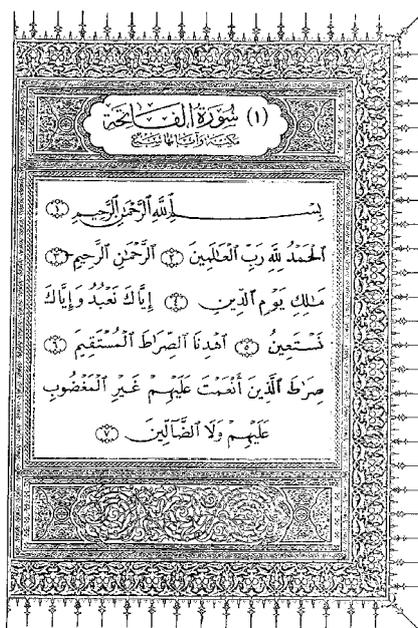 (١) سُورَةُ الفَاتِحَةِ
مكيّة وآياتها سَبْع
بِسْــــمِ ٱللَّهِ ٱلرَّحْمَٰنِ ٱلرَّحِيمِ ١
ٱلْحَمْدُ لِلَّهِ رَبِّ ٱلْعَـٰلَمِينَ ٢ ٱلرَّحْمَٰنِ ٱلرَّحِيمِ ٣
مَـٰلِكِ يَوْمِ ٱلدِّينِ ٤ إِيَّاكَ نَعْبُدُ وَإِيَّاكَ
نَسْتَعِينُ ٥ ٱهْدِنَا ٱلصِّرَٰطَ ٱلْمُسْتَقِيمَ ٦
صِرَٰطَ ٱلَّذِينَ أَنْعَمْتَ عَلَيْهِمْ غَيْرِ ٱلْمَغْضُوبِ
عَلَيْهِمْ وَلَا ٱلضَّآلِّينَ ٧